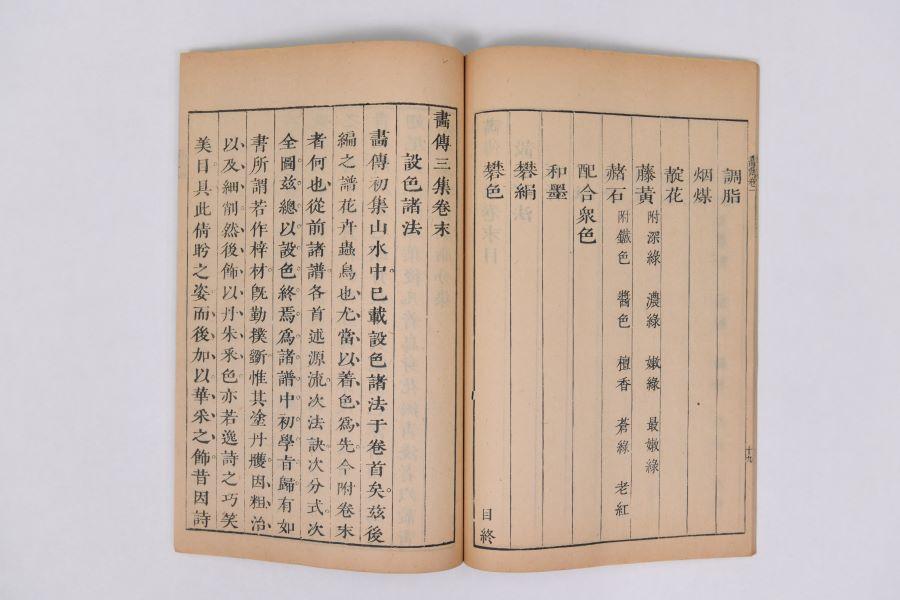 調脂
烟煤
靛花
藤黃 附深綠 濃綠 嫩綠 最嫩綠
赭石 附鐵色 醬色 檀香 蒼綠 老紅
配合衆色
和墨
礬絹法
礬色 目終
十九
畵傳三集卷末
設色諸法
畵傳初集山水中已載設色諸法于卷首矣茲後
編之譜花卉蟲鳥也尤當以着色爲先今附卷末
者何也從前諸譜各首述源流次法訣次分式次
全圖茲總以設色終焉爲諸譜中初學旨歸有如
書所謂若作梓材旣勤撲斵惟其塗丹雘因粗治
以及細削然後飾以丹朱釆色亦若逸詩之巧笑
美目具此倩盻之姿而後加以華釆之飾昔因詩